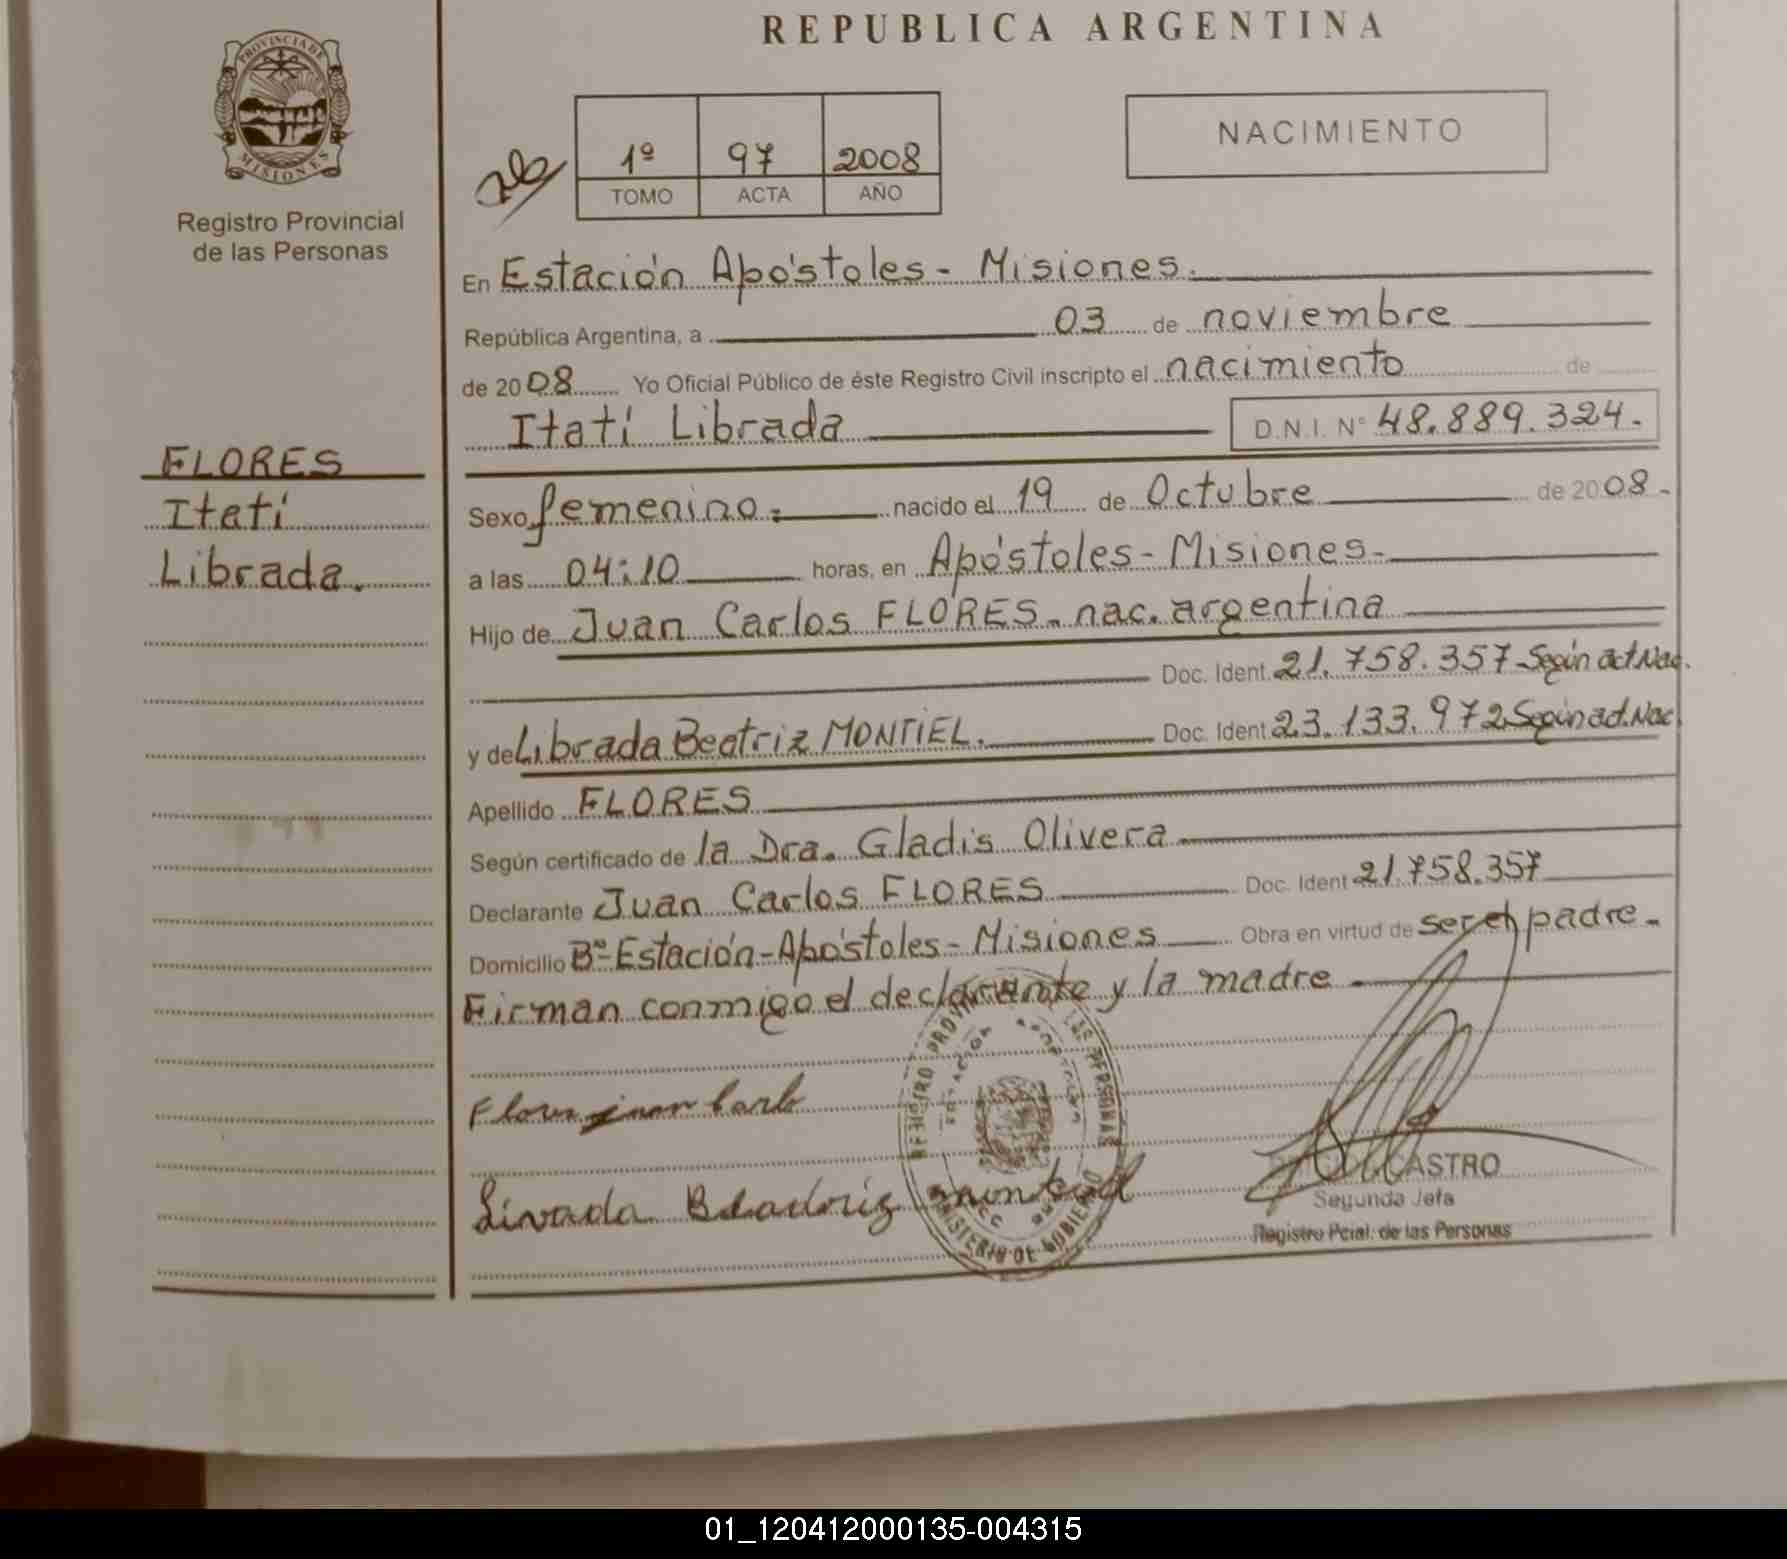 REPUBLICA ARGENTINA
PROVINCIA DE
MISIONES
Registro Provincial
de las Personas
1º 97 2008
TOMO ACTA AÑO
NACIMIENTO
En Estación Apóstoles - Misiones.
República Argentina, a 03 de noviembre
de 2008 Yo Oficial Público de éste Registro Civil inscripto el nacimiento de
Itatí Librada D.N.I. Nº 48.889.324.-
FLORES
Itatí
Librada.
Sexo femenino.- nacido el 19 de Octubre de 2008.-
a las 04:10 horas, en Apóstoles - Misiones.-
Hijo de Juan Carlos FLORES. nac. argentina
Doc. Ident. 21.758.357 Según act Nac.
y de Librada Beatriz MONTIEL. Doc. Ident 23.133.972 Según act. Nac.
Apellido FLORES
Según certificado de la Dra. Gladis Olivera
Declarante Juan Carlos FLORES Doc. Ident 21.758.357
Domicilio Bº Estación - Apóstoles - Misiones Obra en virtud de ser el padre.-
Firman conmigo el declarante y la madre
Flores juan Carlo
REGISTRO LAS PERSONAS
MINISTERIO DE GOBIERNO
CASTRO
Segunda Jefa
Registro Pcial. de las Personas
01_120412000135-004315